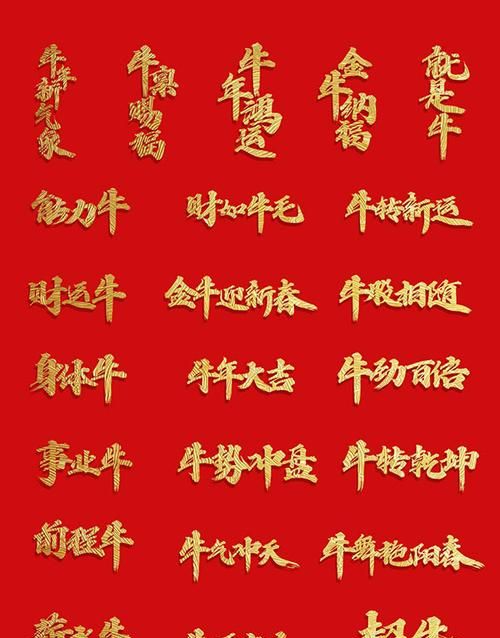 牛年新气象
牛气赐福
牛年鸿运
金牛纳福
就是牛
能力牛
财如牛毛
牛转新运
财运牛
金牛迎新春
牛股相随
身体牛
牛年大吉
牛劲百倍
事业牛
牛势冲盘
牛转乾坤
前程牛
牛气冲天
牛舞艳阳春